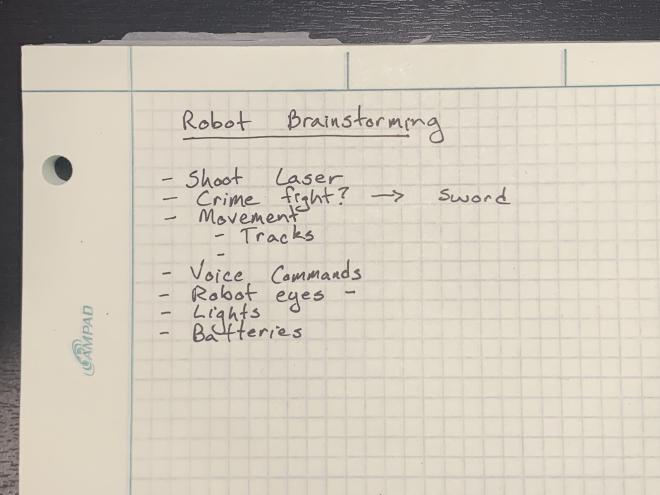 Robot Brainstorming
- Shoot Laser
- Crime fight? → Sword
- Movement
- Tracks
-
- Voice Commands
- Robot eyes -
- Lights
- Batteries
AMPAD